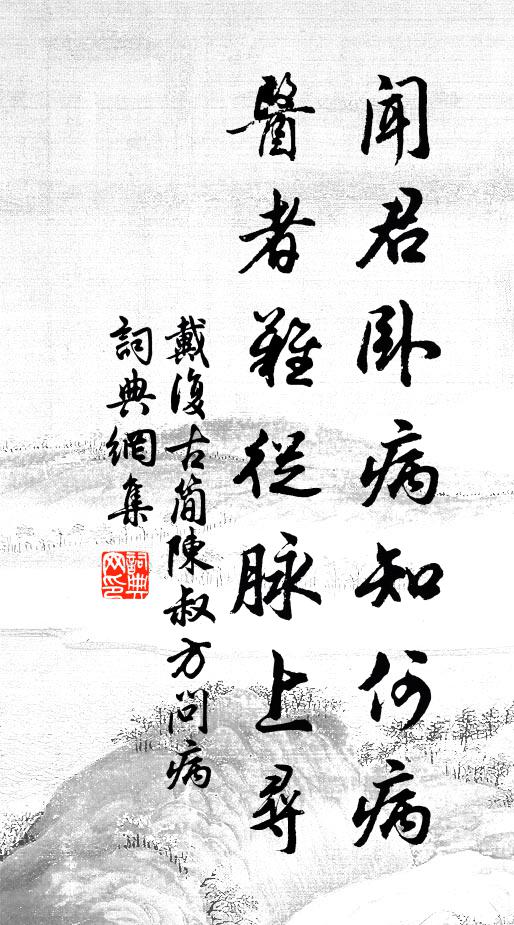 聞君卧病知何病
醫者難從脉上尋
戴復古簡陳叔方問病
詞典網集
詞典
网印